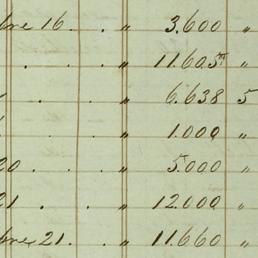 bre 16 . . " 3.600 "
. . . " 11.605 "
. . " 6.638 5
. . " 1.000 "
20 . . " 5.000 "
21 . . " 12.000 "
bre 21 . . " 11.660 "